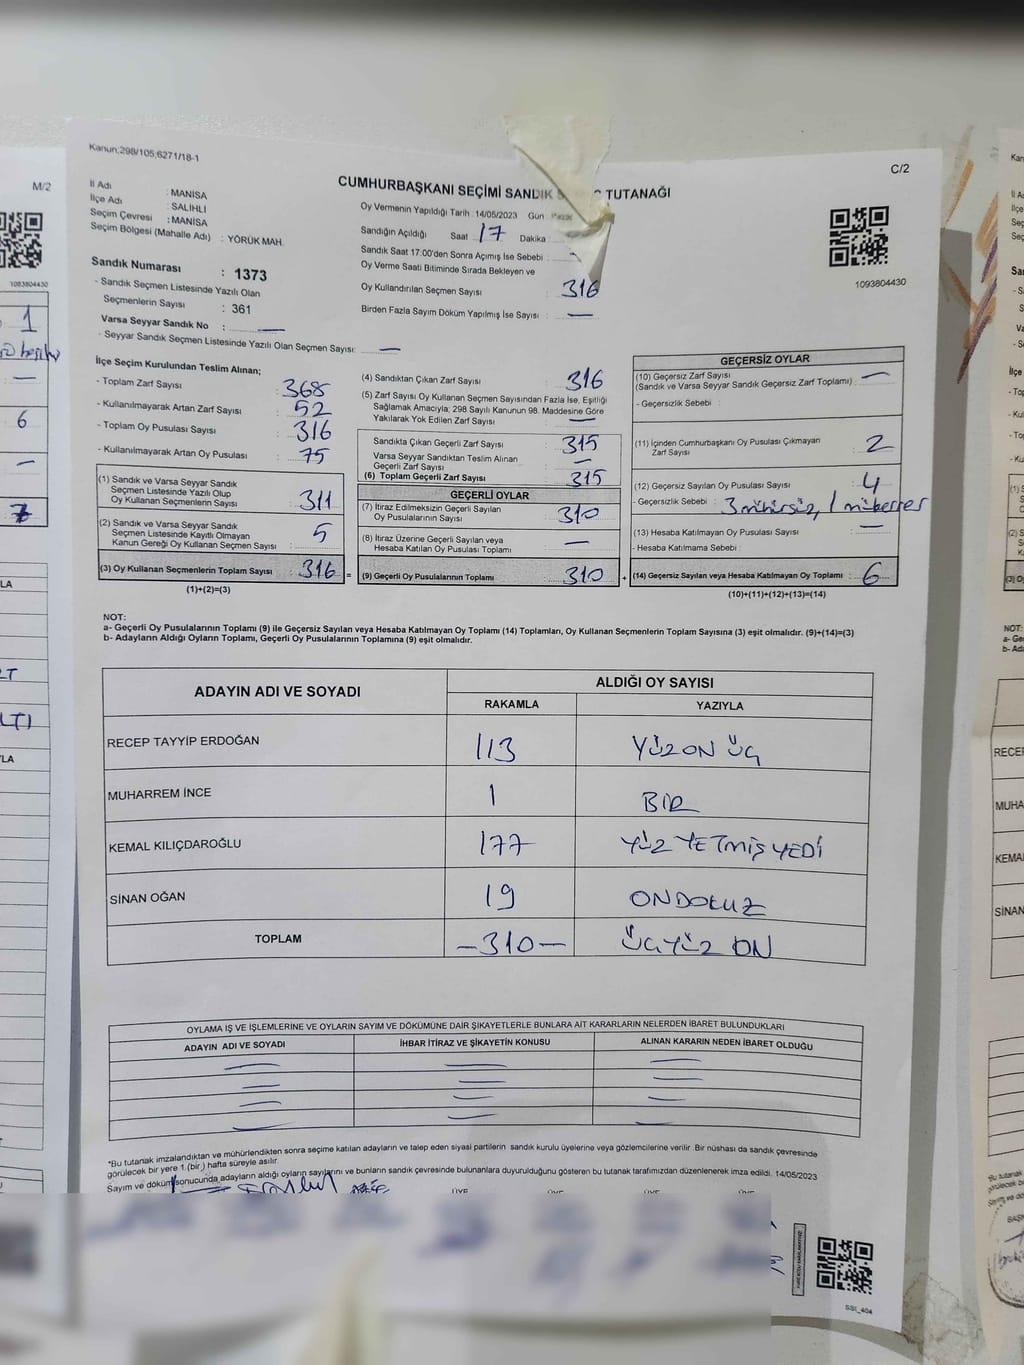 Kanun;298/105;6271/18-1
C/2
CUMHURBAŞKANI SEÇİMİ SANDIK TUTANAĞI
İl Adı : MANİSA
İlçe Adı : SALİHLİ
Seçim Çevresi : MANİSA
Seçim Bölgesi (Mahalle Adı) : YÖRÜK MAH.
Oy Vermenin Yapıldığı Tarih : 14/05/2023 Gün :
Sandığın Açıldığı Saat 17 Dakika :
Sandık Saat 17:00'den Sonra Açımış İse Sebebi :
Oy Verme Saati Bitiminde Sırada Bekleyen ve
Oy Kullandırılan Seçmen Sayısı : 316
Birden Fazla Sayım Döküm Yapılmış İse Sayısı : —
1093804430
Sandık Numarası : 1373
- Sandık Seçmen Listesinde Yazılı Olan
Seçmenlerin Sayısı : 361
Varsa Seyyar Sandık No : —
- Seyyar Sandık Seçmen Listesinde Yazılı Olan Seçmen Sayısı: —
İlçe Seçim Kurulundan Teslim Alınan;
- Toplam Zarf Sayısı : 368
- Kullanılmayarak Artan Zarf Sayısı : 52
- Toplam Oy Pusulası Sayısı : 316
- Kullanılmayarak Artan Oy Pusulası : 75
(1) Sandık ve Varsa Seyyar Sandık
Seçmen Listesinde Yazılı Olup
Oy Kullanan Seçmenlerin Sayısı : 311
(2) Sandık ve Varsa Seyyar Sandık
Seçmen Listesinde Kayıtlı Olmayan
Kanun Gereği Oy Kullanan Seçmen Sayısı : 5
(3) Oy Kullanan Seçmenlerin Toplam Sayısı : 316 =
(1)+(2)=(3)
(4) Sandıktan Çıkan Zarf Sayısı : 316
(5) Zarf Sayısı Oy Kullanan Seçmen Sayısından Fazla İse, Eşitliği
Sağlamak Amacıyla; 298 Sayılı Kanunun 98. Maddesine Göre
Yakılarak Yok Edilen Zarf Sayısı : —
Sandıkta Çıkan Geçerli Zarf Sayısı : 315
Varsa Seyyar Sandıktan Teslim Alınan
Geçerli Zarf Sayısı : —
(6) Toplam Geçerli Zarf Sayısı : 315
GEÇERLİ OYLAR
(7) İtiraz Edilmeksizin Geçerli Sayılan
Oy Pusulalarının Sayısı : 310
(8) İtiraz Üzerine Geçerli Sayılan veya
Hesaba Katılan Oy Pusulası Toplamı : —
(9) Geçerli Oy Pusulalarının Toplamı : 310 +
GEÇERSİZ OYLAR
(10) Geçersiz Zarf Sayısı
(Sandık ve Varsa Seyyar Sandık Geçersiz Zarf Toplamı) : —
- Geçersizlik Sebebi :
(11) İçinden Cumhurbaşkanı Oy Pusulası Çıkmayan
Zarf Sayısı : 2
(12) Geçersiz Sayılan Oy Pusulası Sayısı : 4
- Geçersizlik Sebebi : 3 mühürsüz, 1 mükerrer
(13) Hesaba Katılmayan Oy Pusulası Sayısı : —
- Hesaba Katılmama Sebebi :
(14) Geçersiz Sayılan veya Hesaba Katılmayan Oy Toplamı : 6
(10)+(11)+(12)+(13)=(14)
NOT:
a- Geçerli Oy Pusulalarının Toplamı (9) ile Geçersiz Sayılan veya Hesaba Katılmayan Oy Toplamı (14) Toplamları, Oy Kullanan Seçmenlerin Toplam Sayısına (3) eşit olmalıdır. (9)+(14)=(3)
b- Adayların Aldığı Oyların Toplamı, Geçerli Oy Pusulalarının Toplamına (9) eşit olmalıdır.
ADAYIN ADI VE SOYADI
ALDIĞI OY SAYISI
RAKAMLA YAZIYLA
RECEP TAYYİP ERDOĞAN 113 YÜZ ON ÜÇ
MUHARREM İNCE 1 BİR
KEMAL KILIÇDAROĞLU 177 YÜZ YETMİŞ YEDİ
SİNAN OĞAN 19 ONDOKUZ
TOPLAM —310— ÜÇYÜZ ON
OYLAMA İŞ VE İŞLEMLERİNE VE OYLARIN SAYIM VE DÖKÜMÜNE DAİR ŞİKAYETLERLE BUNLARA AİT KARARLARIN NELERDEN İBARET BULUNDUKLARI
ADAYIN ADI VE SOYADI İHBAR İTİRAZ VE ŞİKAYETİN KONUSU ALINAN KARARIN NEDEN İBARET OLDUĞU
*Bu tutanak imzalandıktan ve mühürlendikten sonra seçime katılan adayların ve talep eden siyasi partilerin sandık kurulu üyelerine veya gözlemcilerine verilir. Bir nüshası da sandık çevresinde
görülecek bir yere 1 (bir) hafta süreyle asılır.
Sayım ve döküm sonucunda adayların aldığı oyların sayılarını ve bunların sandık çevresinde bulunanlara duyurulduğunu gösteren bu tutanak tarafımızdan düzenlenerek imza edildi. 14/05/2023
SSI_404
M/2
1093804430
1
6
7